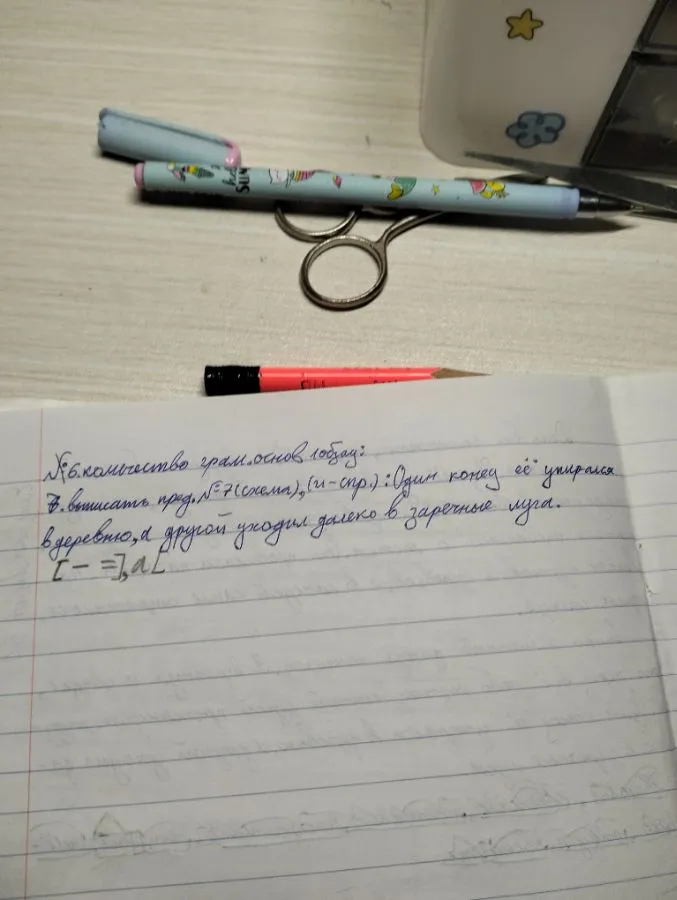 №6. количество грам. основ 1 абзац:
7. выписать пред. №7 (схема), (и-спр.): Один конец её упирался
в деревню, а другой уходил далеко в заречные луга.
[— =], а [